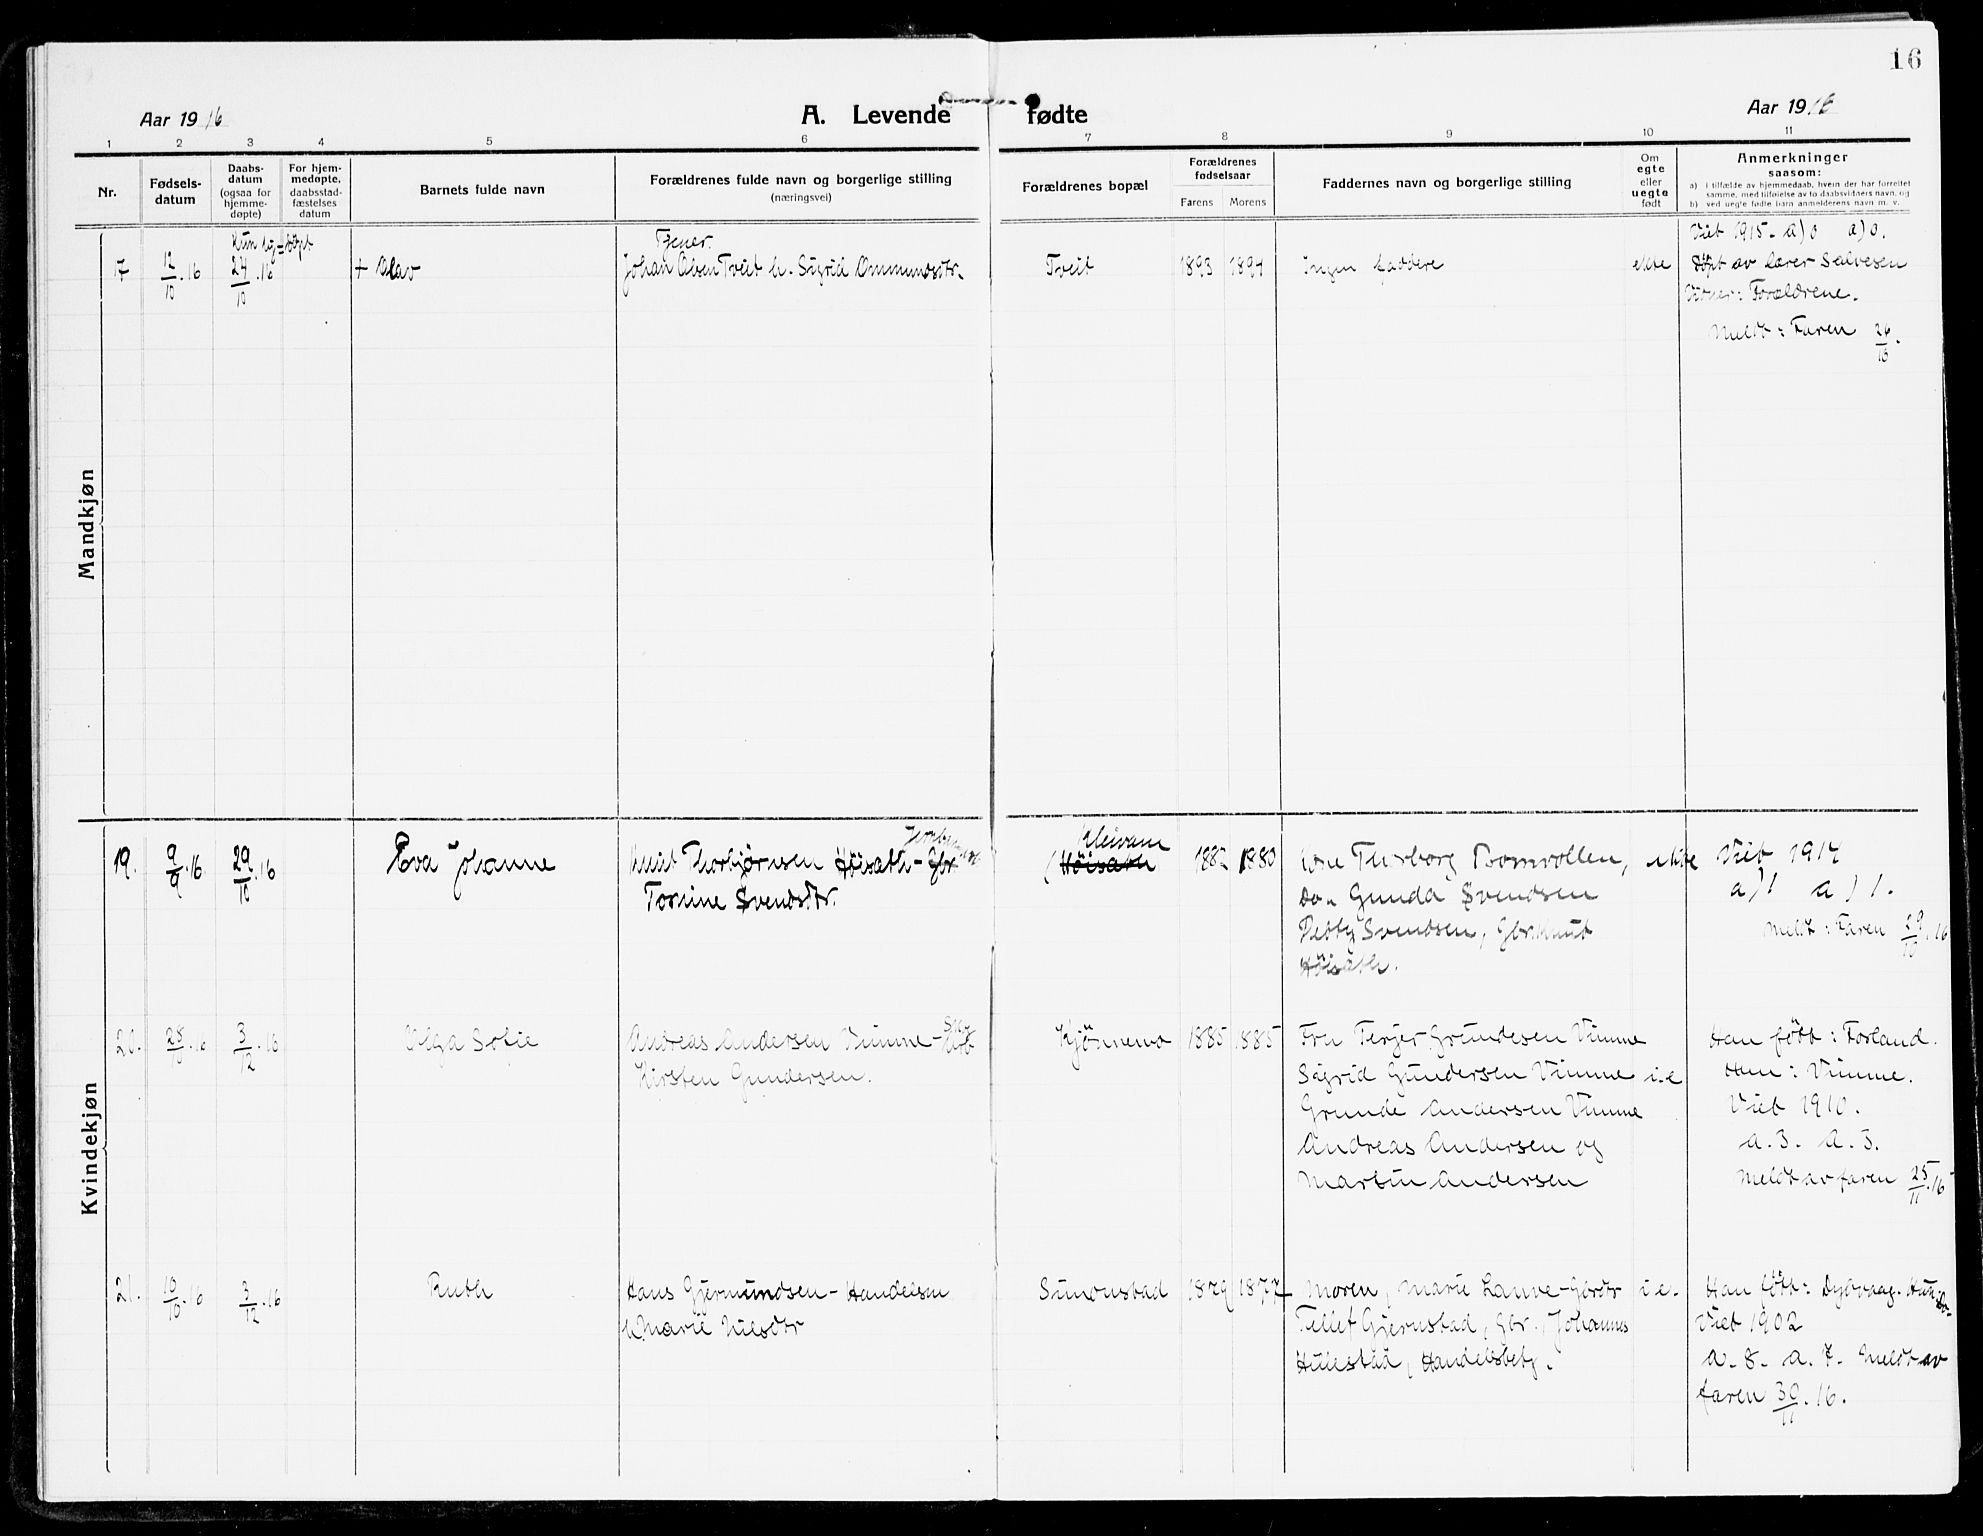 16
Aar 1916
A. Levende fødte
Aar 1916
1 2 3 4 5 6 7 8 9 10 11
Nr.
Fødsels-
datum
Daabs-
datum
(ogsaa for
hjemme-
døpte)
For hjem-
medøpte,
daabsstad-
fæstelses
datum
Barnets fulde navn
Forældrenes fulde navn og borgerlige stilling
(næringsvei)
Forældrenes bopæl
Forældrenes
fødselsaar
Farens Morens
Faddernes navn og borgerlige stilling
Om
egte
eller
uegte
født
Anmerkninger
saasom:
a) i tilfælde av hjemmedaab, hvem der har forrettet
samme, med tilføielse av to daabsvidners navn, og
b) ved uegte fødte barn anmelderens navn m. v.
Mandkjøn
17 12/10.16 24/10.16 + Olav
Tjener.
Johan Olsen Tveit h. Sigrid Ommundsdtr.
Tveit 1893 1891 Ingen faddere ekte
Viet 1915 - a) 0 a) 0.
Døpt av lærer Salvesen
Vidner: Forældrene.
Meldt: Faren 26/10.
Kvindekjøn
19. 9/9.16 29/10.16 Eva Johanne
Knut Thorbjørnsen Høisæth - Gbr
Tomine Svendsdtr.
Kleivane
Høisæth
1882 1880
Kone Thorborg Bomvollen, ekte
Do. Gunda Svendsen
Betty Svendsen, Gbr. Knut
Høisæth.
Viet 1914
a) 1 a) 1.
Meldt: Faren 29/10.16
20. 28/10.16 3/12.16 Olga Sofie
Andreas Andersen Vimme -
Kirsten Gundersen.
1885 1885
Fru Terjer Grundesen Vimme
Sigrid Gundersen Vimme i.e
Grunde Andersen Vimme
Andreas Andersen og
Martin Andersen
Han født: Forland.
Hun: Vimme.
Viet 1910.
a. 3. a. 3.
Meldt av faren 25/11.16
21. 10/10.16 3/12.16 Ruth
Hans Gjermundsen - Handelsm
h. Marie Nilsdtr
Simonstad 1879 1877
Moren, Marie Lauve - Gårdr i.e.
Tellef Gjernstad, Gbr., Johannes
Hillestad, Handelsbetj.
Han født: Dybvaag. Hun Do.
Viet 1902
a. 8. a. 7. Meldt av
faren 30/11.16.